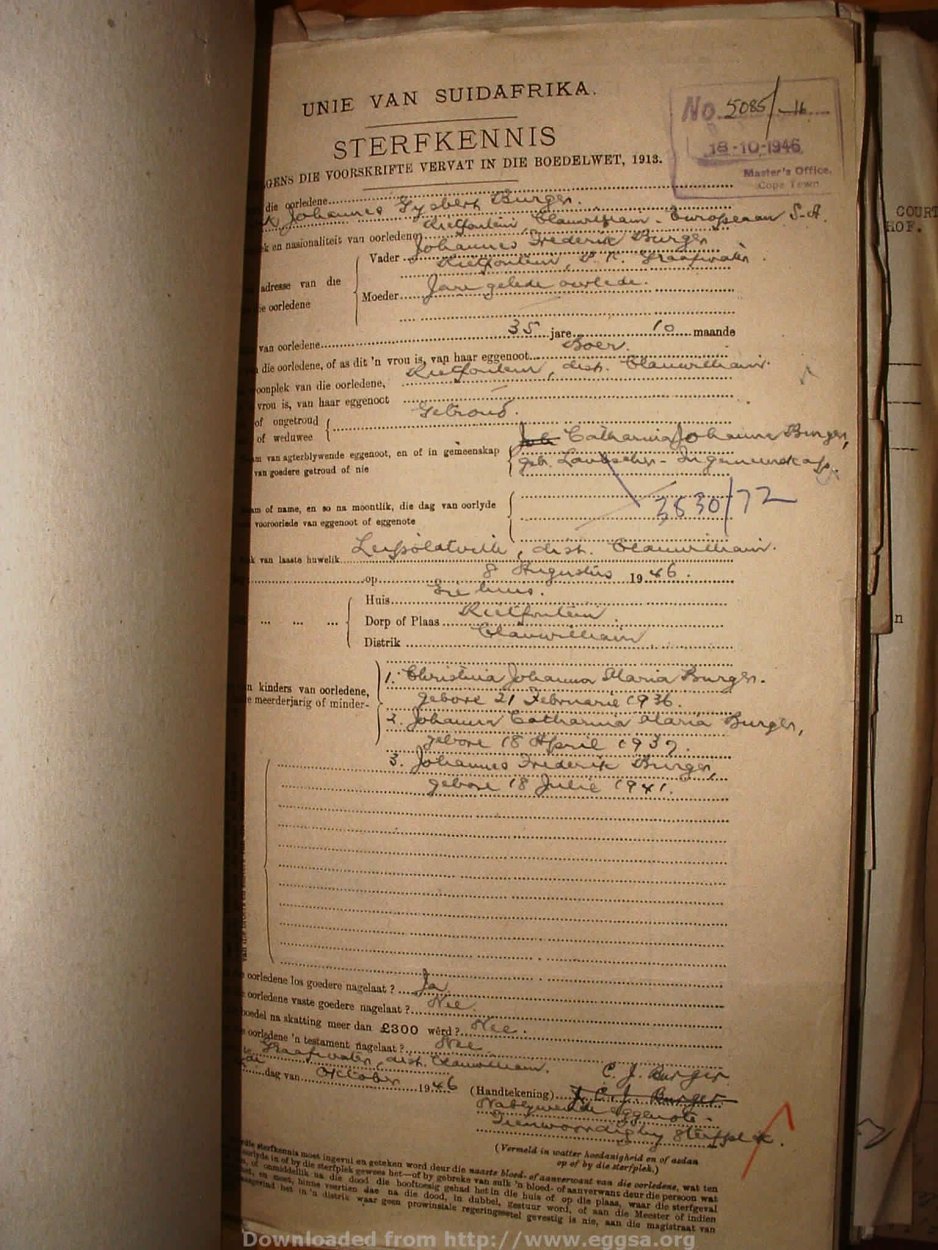 UNIE VAN SUIDAFRIKA.
No. 5085/16
STERFKENNIS
18-10-1946
Master's Office,
Cape Town
GENS DIE VOORSKRIFTE VERVAT IN DIE BOEDELWET, 1913.
COURT
HOF.
die oorledene
Johannes Gysbert Burger.
Rietfontein, Clanwilliam - Europeaan S.A.
k en nasionaliteit van oorledene
Vader Johannes Frederik Burger
Rietfontein, Graafwater.
adresse van die
oorledene
Moeder Jare gelede oorlede.
van oorledene 35 jare 10 maande
die oorledene, of as dit 'n vrou is, van haar eggenoot Boer.
oonplek van die oorledene, Rietfontein, dist. Clanwilliam.
vrou is, van haar eggenoot
of ongetroud Getroud.
of weduwee
am van agterblywende eggenoot, en of in gemeenskap Catharina Johanna Burger,
van goedere getroud of nie geb. Laubscher - In gemeenskap.
am of name, en so na moontlik, die dag van oorlyde
vooroorlede van eggenoot of eggenote
3830/72
k van laaste huwelik Leipoldtville, dist. Clanwilliam.
op 8 Augustus 1946.
Huis
Dorp of Plaas Rietfontein
Distrik Clanwilliam
n
1. Christina Johanna Maria Burger.
n kinders van oorledene,
e meerderjarig of minder-
gebore 21 Februarie 1936.
2. Johanna Catharina Maria Burger,
gebore 18 April 1937.
3. Johannes Frederik Burger,
gebore 18 Julie 1941.
oorledene los goedere nagelaat? Ja
oorledene vaste goedere nagelaat? Nee
boedel na skatting meer dan £300 wêrd? Nee.
oorledene 'n testament nagelaat? Nee
te Graafwater, dist. Clanwilliam.
C. J. Burger
dag van October 1946 (Handtekening) J. C. J. Burger
Nablywende eggenote.
Teenwoordig by sterfplek.
(Vermeld in watter hoedanigheid en of aedan
op of by die sterfplek.)
sterfkennis moet ingevul en geteken word deur die naaste bloed- of aanverwant van die oorledene, wat ten
oorlyde in of by die sterfplek gewees het—of by gebreke van sulk 'n bloed- of aanverwant deur die persoon wat
of onmiddellik na die dood die hooftoesig gehad het in die huis of op die plaas, waar die sterfgeval
en moet, binne veertien dae na die dood, in dubbel, gestuur word, of aan die Meester of indien
het in 'n distrik waar geen provinsiale regeringsetel gevestig is nie, aan die magistraat van
Downloaded from http://www.eggsa.org